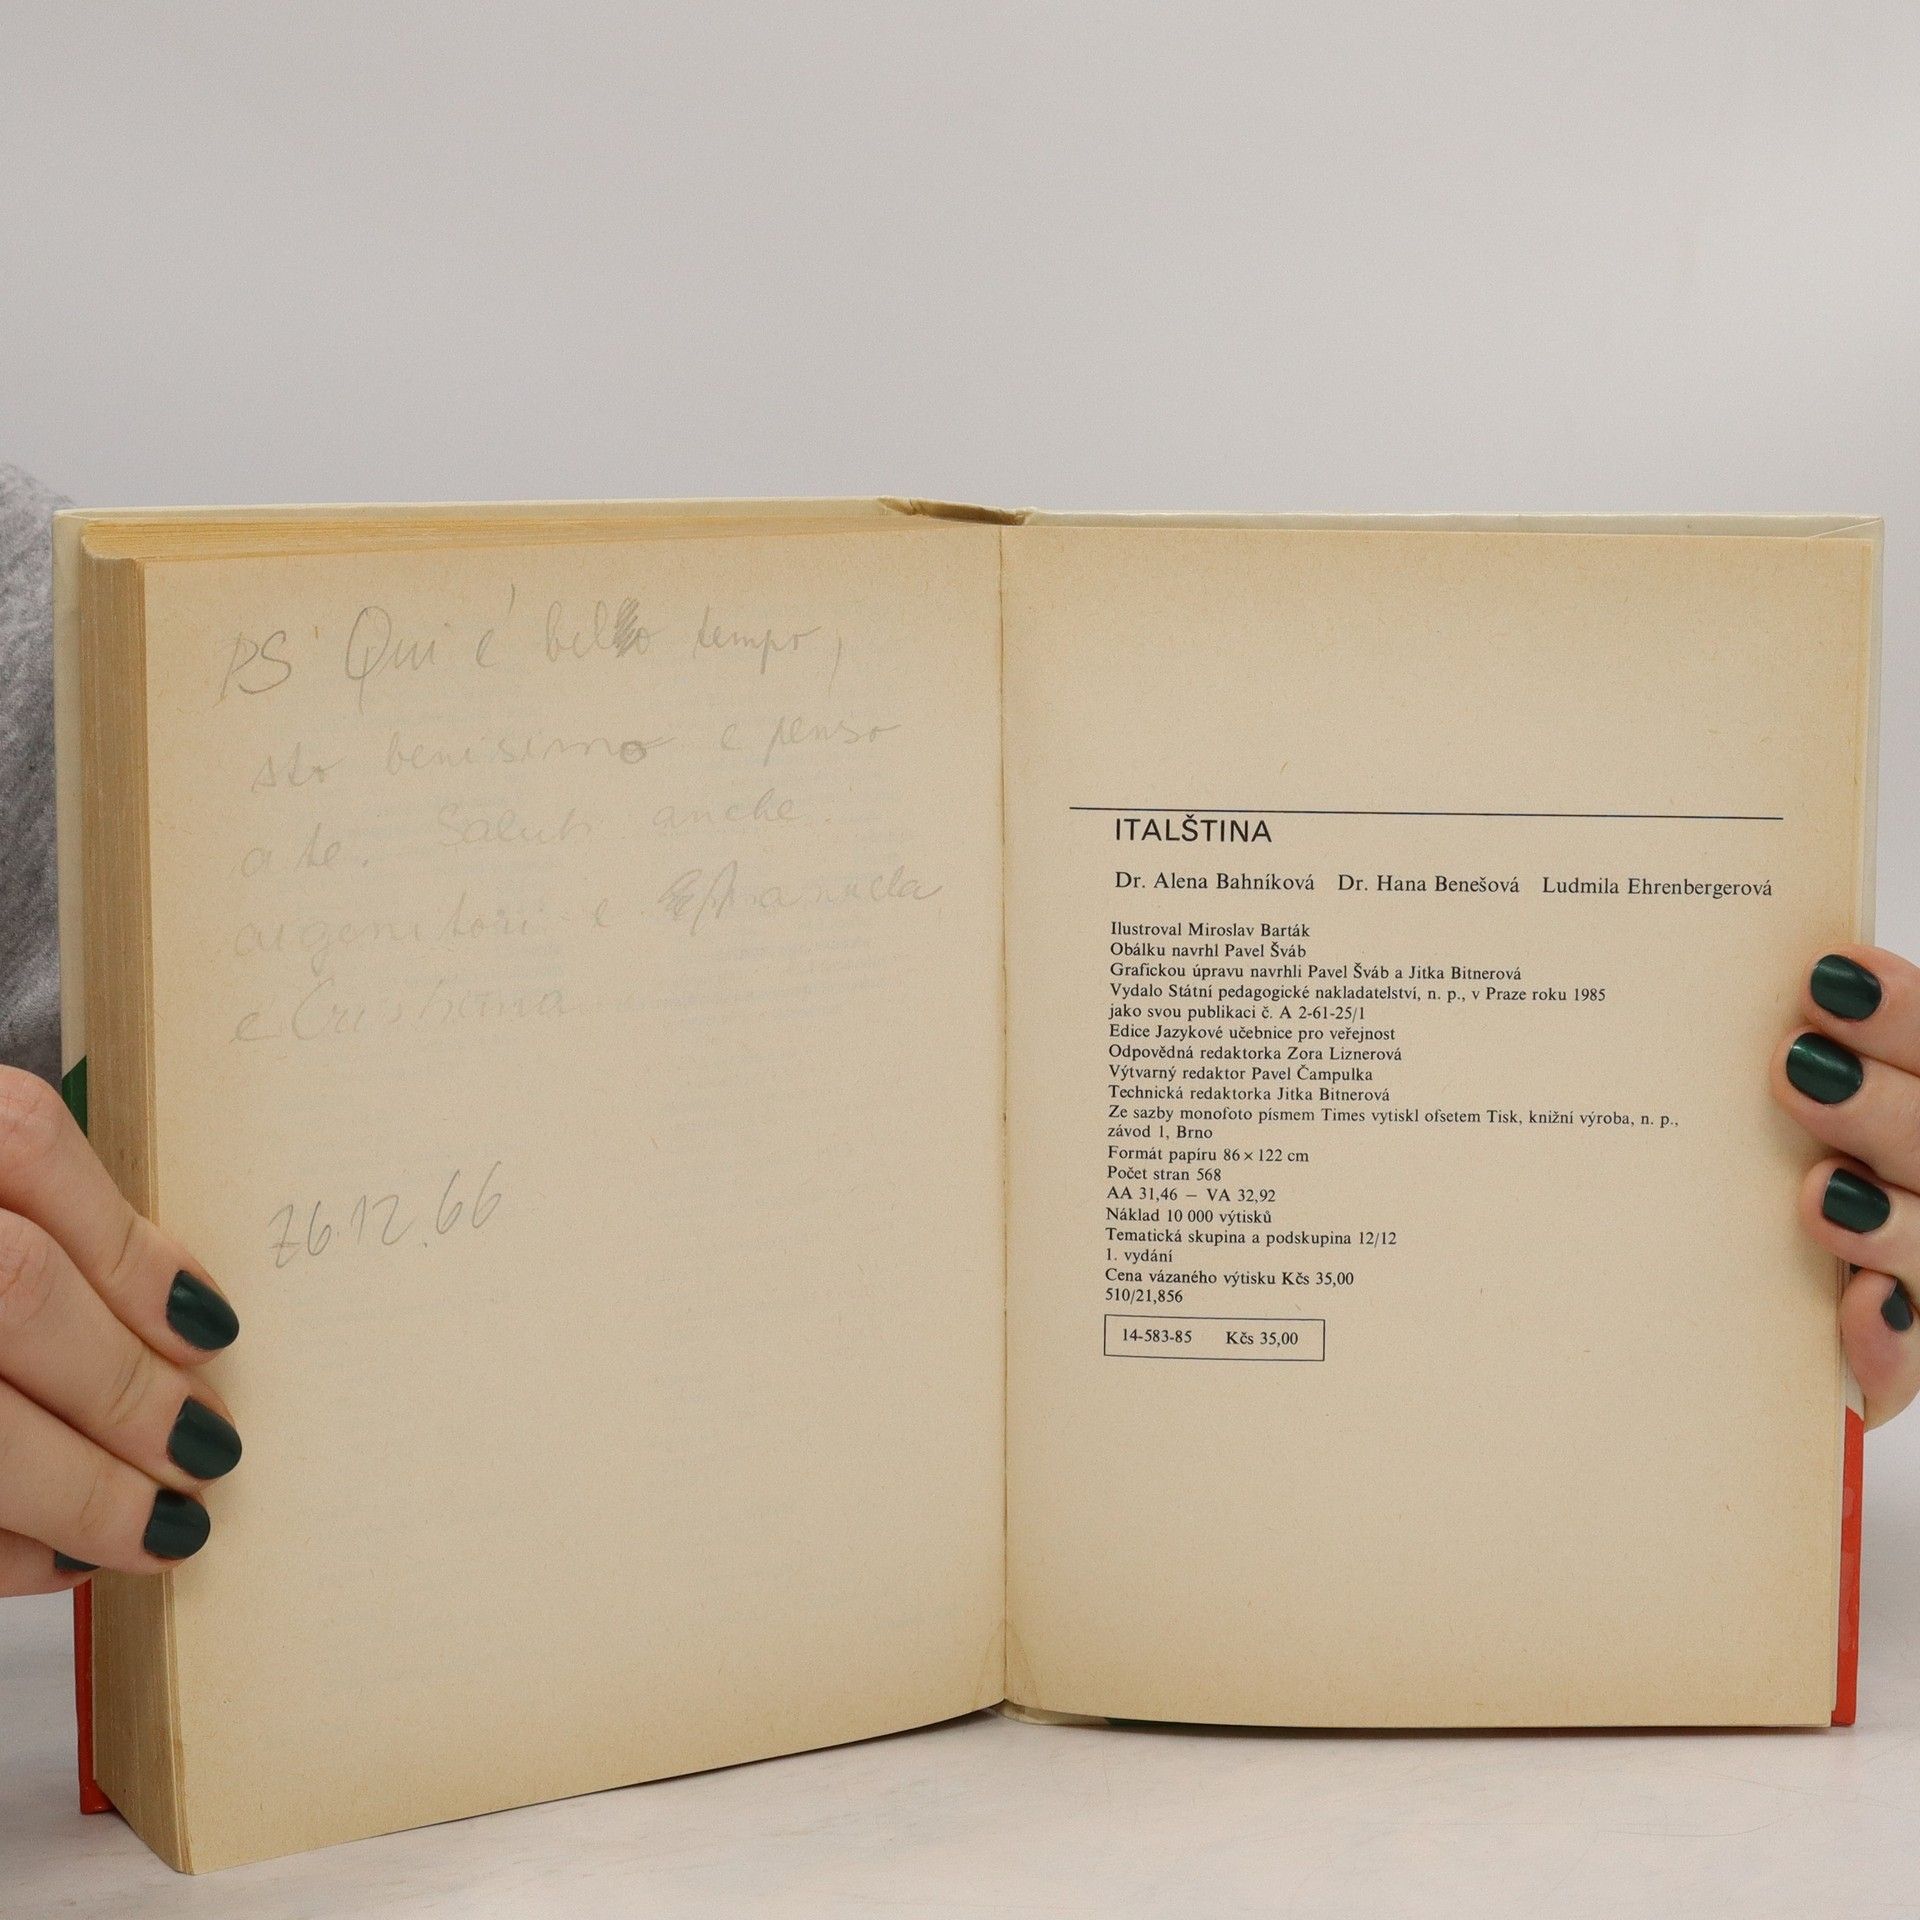 PS Qui è bello tempo,
sto benisimo e penso
a te. Saluti anche
ai genitori e
e Cristina
26.12.66
ITALŠTINA
Dr. Alena Bahníková Dr. Hana Benešová Ludmila Ehrenbergerová
Ilustroval Miroslav Barták
Obálku navrhl Pavel Šváb
Grafickou úpravu navrhli Pavel Šváb a Jitka Bitnerová
Vydalo Státní pedagogické nakladatelství, n. p., v Praze roku 1985
jako svou publikaci č. A 2-61-25/1
Edice Jazykové učebnice pro veřejnost
Odpovědná redaktorka Zora Liznerová
Výtvarný redaktor Pavel Čampulka
Technická redaktorka Jitka Bitnerová
Ze sazby monofoto písmem Times vytiskl ofsetem Tisk, knižní výroba, n. p.,
závod 1, Brno
Formát papíru 86 × 122 cm
Počet stran 568
AA 31,46 – VA 32,92
Náklad 10 000 výtisků
Tematická skupina a podskupina 12/12
1. vydání
Cena vázaného výtisku Kčs 35,00
510/21,856
14-583-85 Kčs 35,00